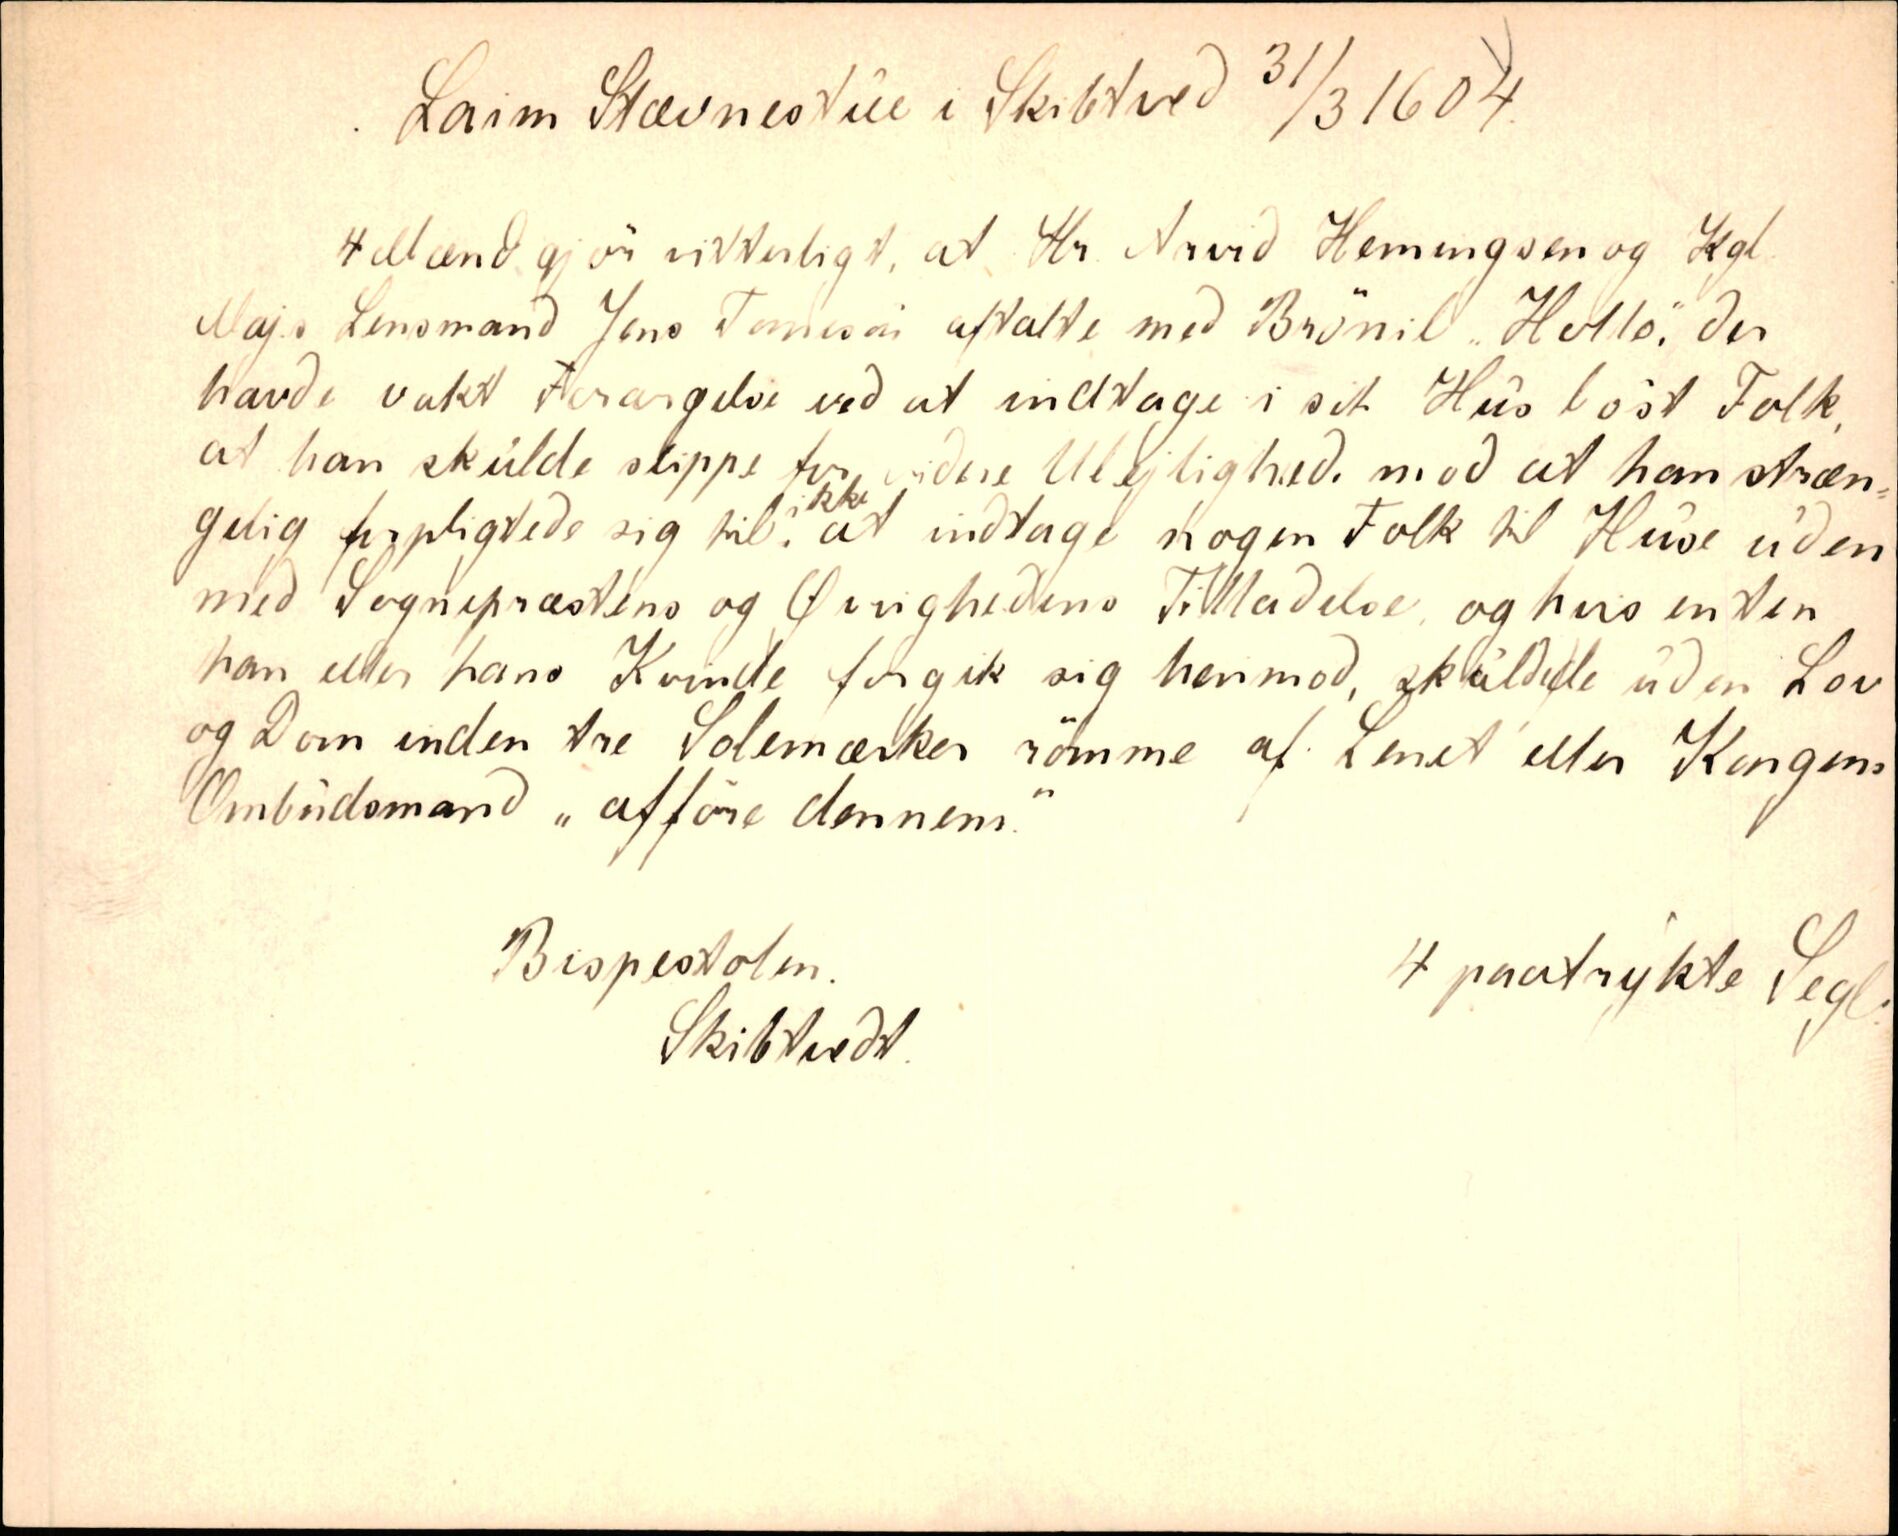 Laim Stævnestue i Skibtved 31/3 1604.
4 Mænd gjör vitterligt, at Hr. Arvid Hemingsen og Kgl.
Maj.s Lensmand Jens aftalte med Brönil „Hollö", der
havde vakt Forargelse ved at indtage i sit Hus löst Folk,
at han skulde slippe for videre Ulejlighed. mod at han stræn=
gelig forpligtede sig til ikke at indtage nogen Folk til Huse uden
med Sognepræstens og Øvrighedens Tilladelse, og hvis enten
han eller hans Kvinde forgik sig herimod, skulde de uden Lov
og Dom inden tre Solemærker römme af Lenet eller Kongens
Ombudsmand „afföre dennem."
Bispestolen.
4 paatrykte Segl.
Skibtvedt.